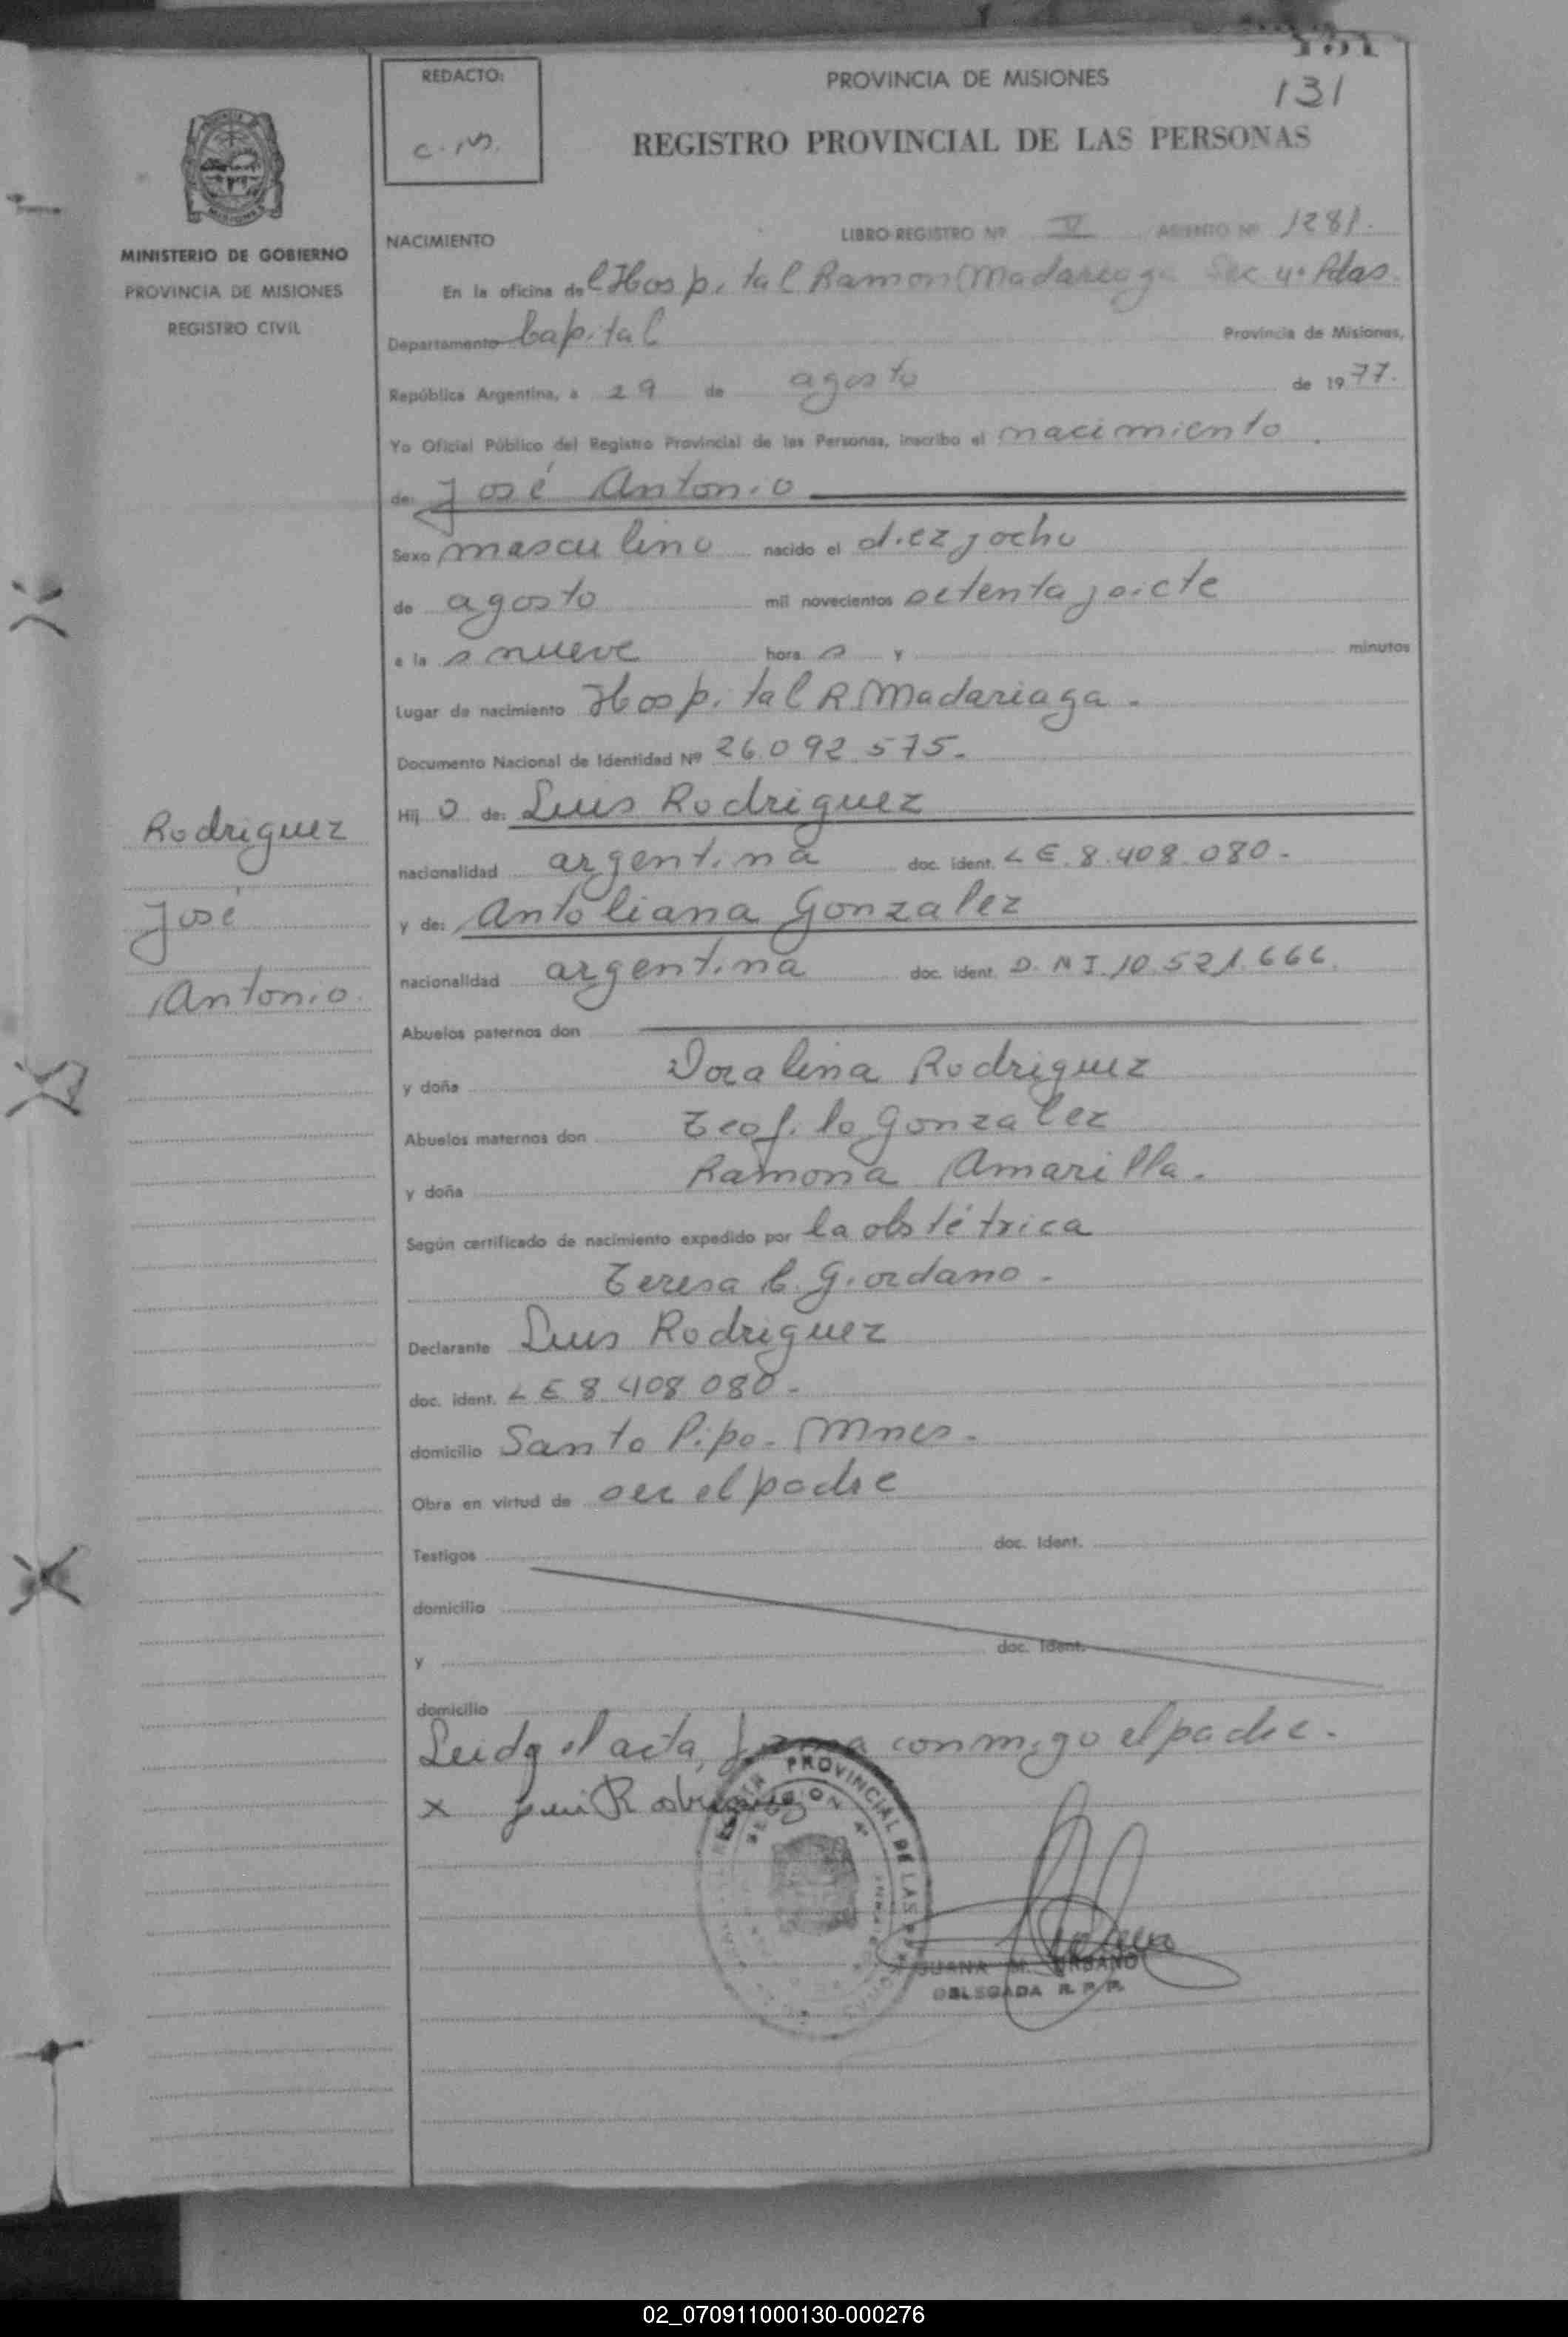 131
REDACTO:
PROVINCIA DE MISIONES
131
REGISTRO PROVINCIAL DE LAS PERSONAS
MINISTERIO DE GOBIERNO
PROVINCIA DE MISIONES
REGISTRO CIVIL
NACIMIENTO LIBRO REGISTRO Nº V ASIENTO Nº 1281.
En la oficina del Hospital Ramon Madariaga Sec 4ª Pdas.
Departamento Capital Provincia de Misiones,
República Argentina, a 29 de agosto de 1977.
Yo Oficial Público del Registro Provincial de las Personas, inscribo el nacimiento
de: José Antonio
Sexo masculino nacido el diez y ocho
de agosto mil novecientos setenta y siete
a la s nueve hora s y minutos
Lugar de nacimiento Hospital R Madariaga.
Documento Nacional de Identidad Nº 26.092.575.
Hij o de: Luis Rodriguez
nacionalidad argentina doc. ident. L E. 8.408.080.
y de: Antoliana Gonzalez
nacionalidad argentina doc. ident. D.N I. 10.521.666.
Abuelos paternos don
y doña Doralina Rodriguez
Abuelos maternos don Teofilo Gonzalez
y doña Ramona Amarilla.
Según certificado de nacimiento expedido por la obstétrica
Teresa C. Giordano.
Declarante Luis Rodriguez
doc. ident. L E 8.408.080.
domicilio Santo Pipo. Mnes.
Obra en virtud de ser el padre
Testigos doc. ident.
domicilio
y doc. ident.
domicilio
Leida el acta, firma conmigo el padre.
x Luis Rodriguez
Rodriguez
José
Antonio.
PROVINCIAL DE LAS
JUANA M. URBANO
DELEGADA R. P. P.
02_070911000130-000276